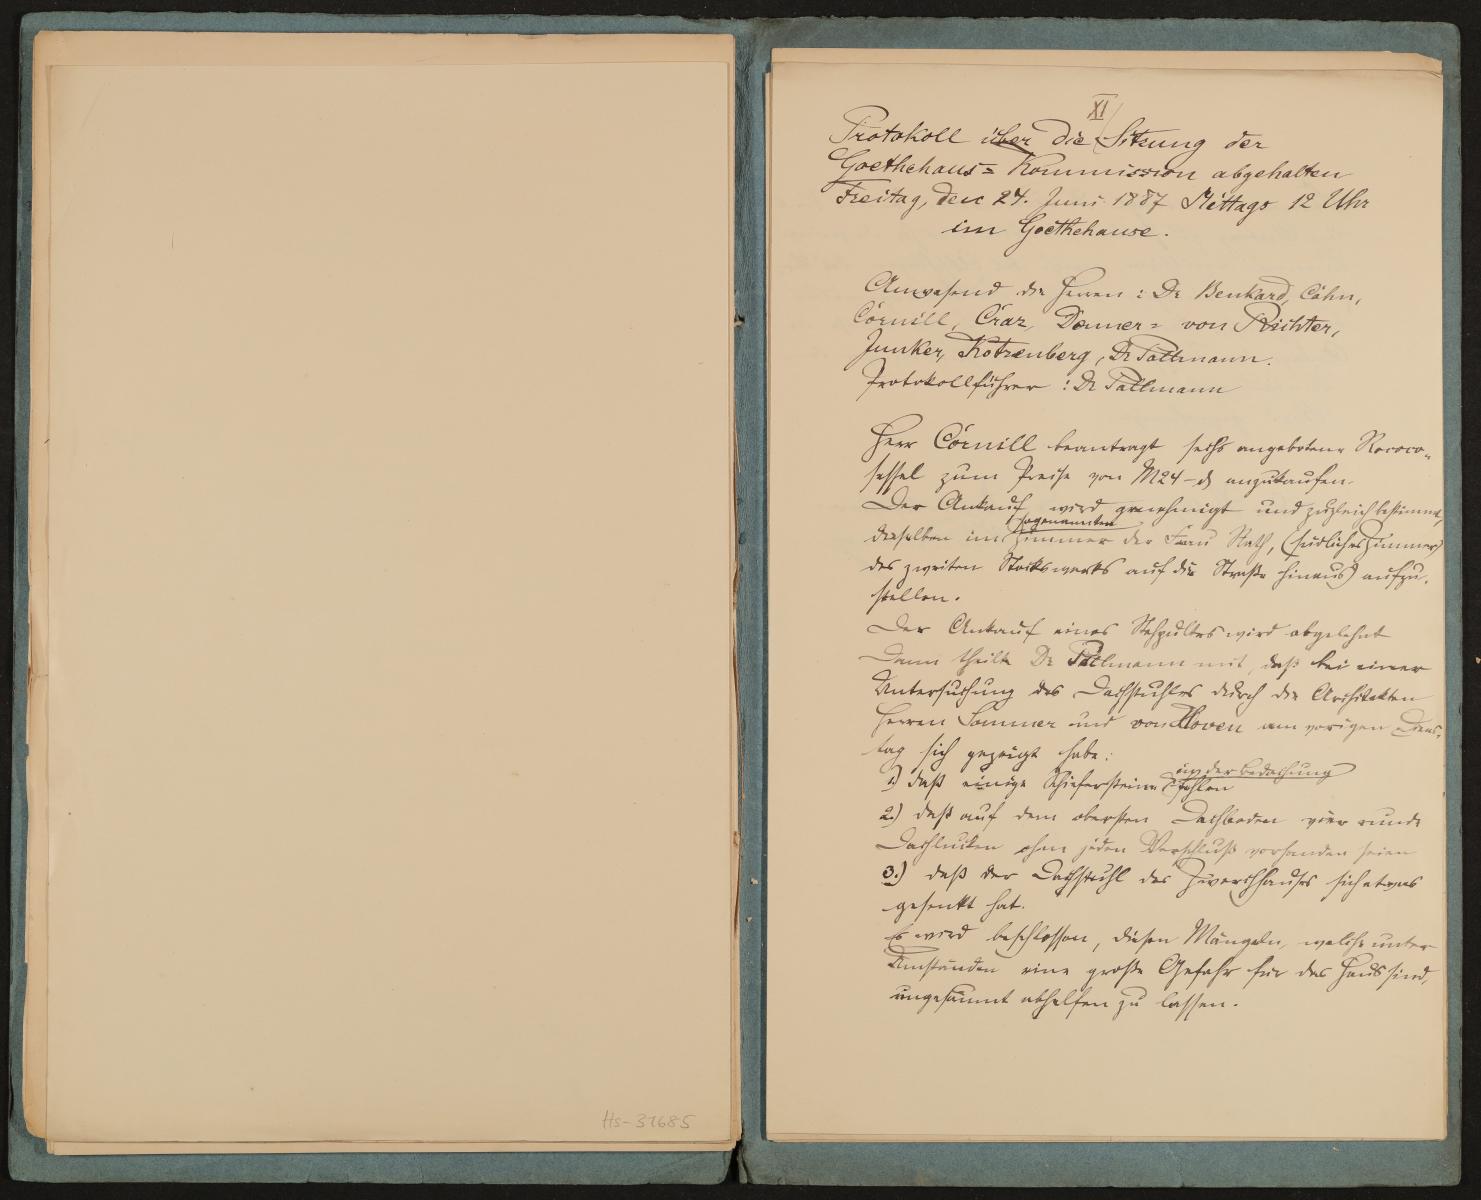 XI
Protokoll über die Sitzung der
Goethehaus= Kommission abgehalten
Freitag, den 24. Juni 1887 Mittags 12 Uhr
im Goethehause.
Anwesend die Herren: Dr Benkard, Cahn,
Cornill, Donner= von Richter,
Junker, Kotzenberg, Dr Pallmann.
Protokollführer: Dr Pallmann
Herr Cornill beantragt sechs angebotene Rococo=
sessel zum Preise von M24 anzukaufen.
Der Ankauf wird genehmigt und zugleich bestimmt,
dieselben im sogenannten Zimmer der Frau Rath, (südliches Zimmer
des zweiten Stockwerks auf die Straße hinaus) aufzu=
stellen.
Der Ankauf eines Stehpultes wird abgelehnt
Dann theilte Dr Pallmann mit, daß bei einer
Untersuchung des Dachstuhles durch die Architekten
Herren Sommer und von Hoven am vorigen Diens=
tag sich gezeigt habe:
1.) daß einige Schiefersteine in der Bedachung fehlen
2.) daß auf dem obersten Dachboden vier runde
Dachluken ohne jeden Verschluß vorhanden seien
3.) daß der Dachstuhl des Zwerchhauses sich etwas
gesenkt hat.
Es wird beschlossen, diesen Mängeln, welche unter
Umständen eine große Gefahr für das Haus sind,
ungesäumt abhelfen zu lassen.
Hs-31685